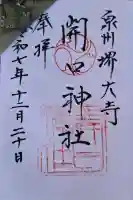 泉州堺大寺
開口神社
奉拝
令和七年十二月二十日